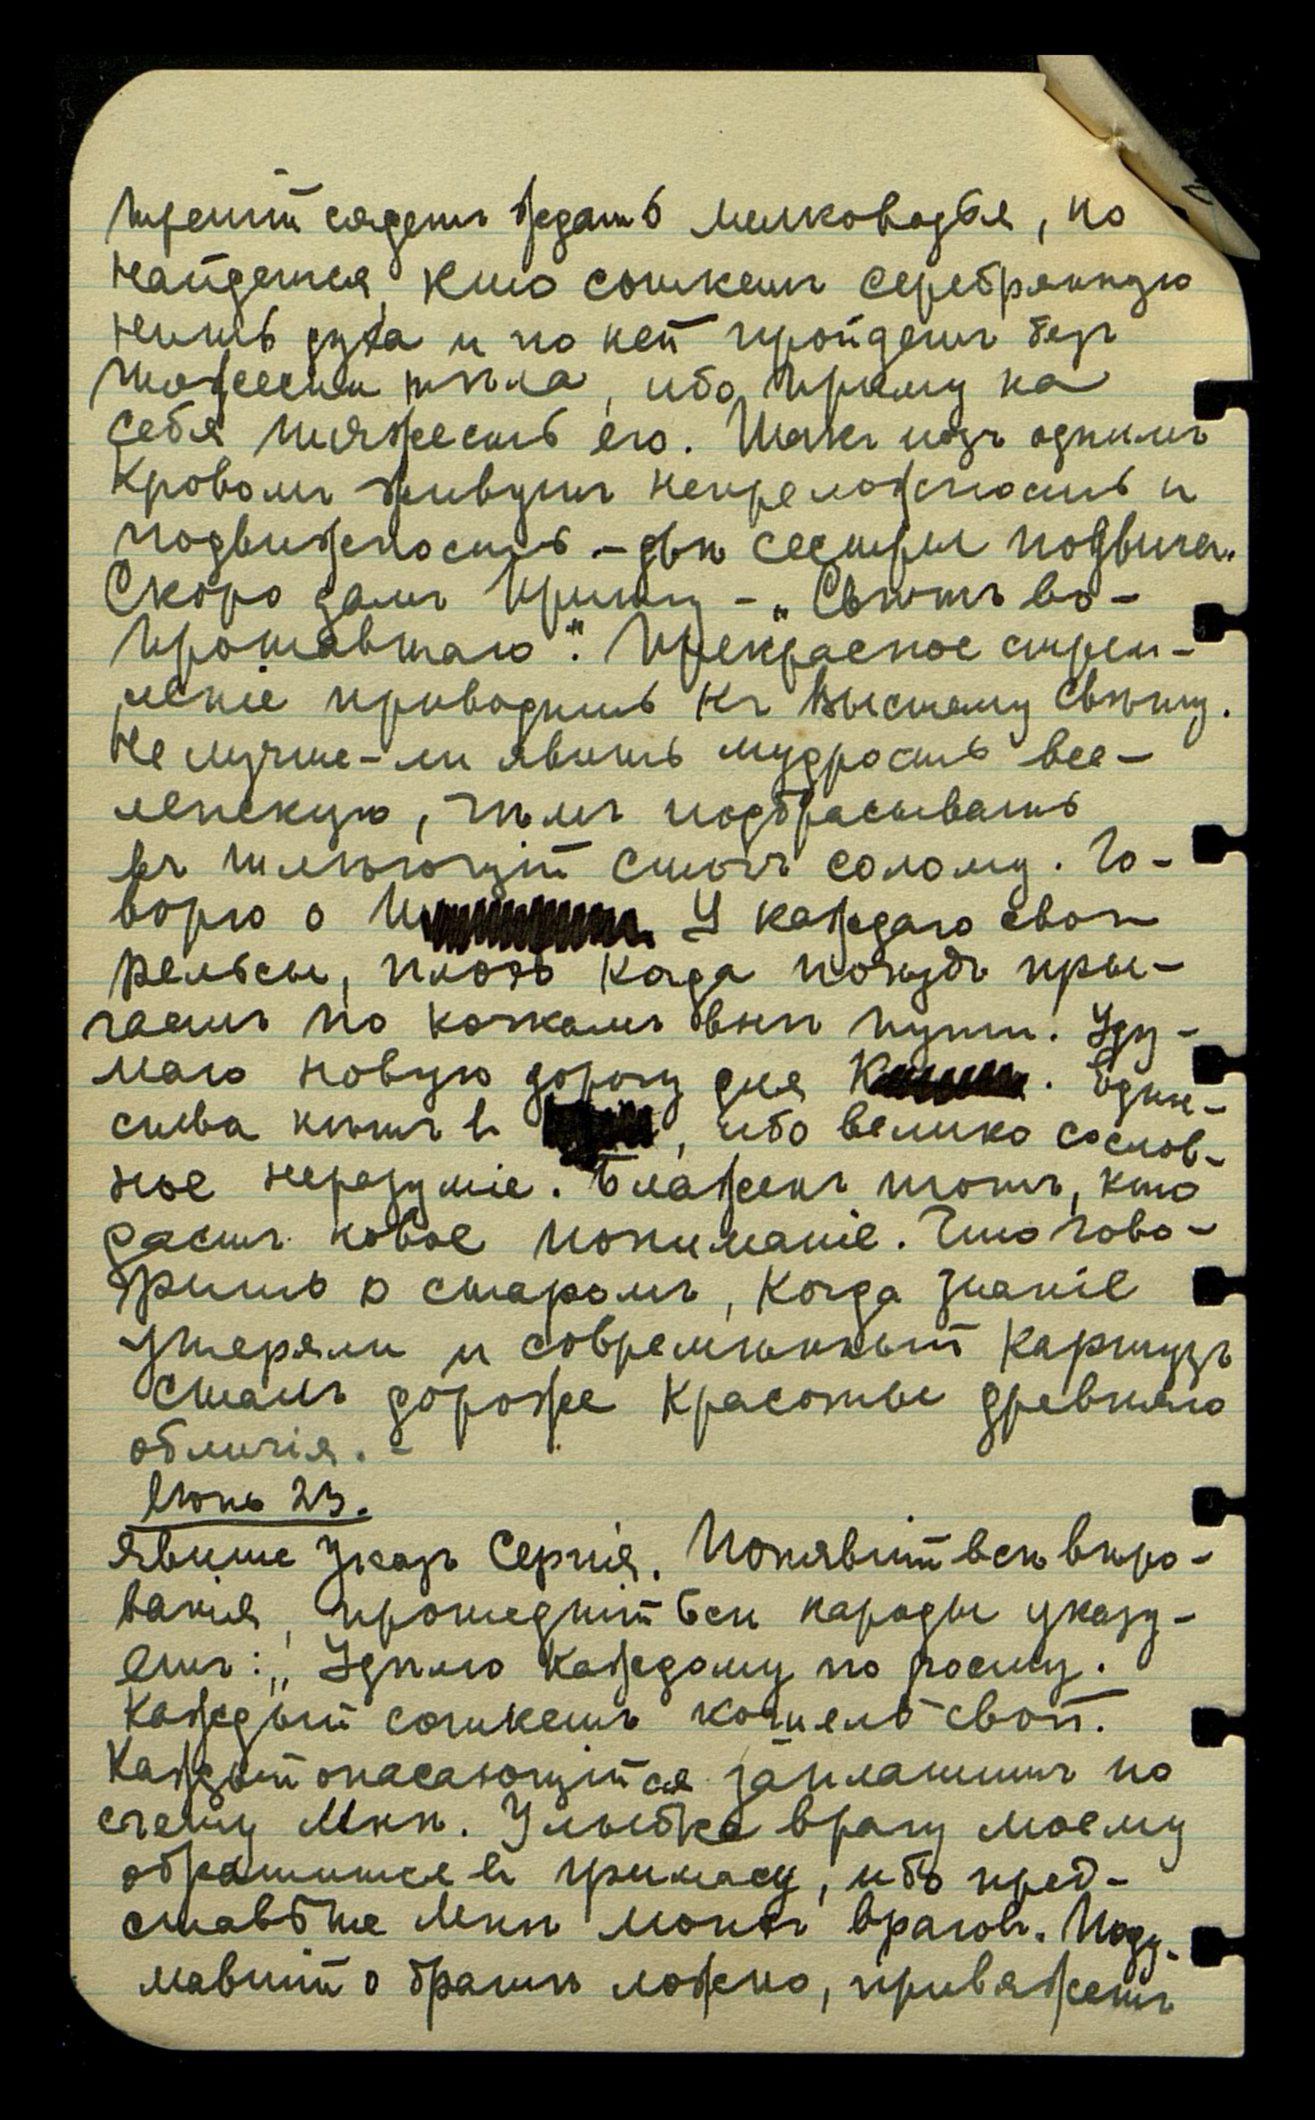 третій сядетъ ждать мелководья, но
найдется, кто соткетъ серебрянную
нить духа и по ней пройдетъ безъ
тяжести тѣла, ибо приму на
себя тяжесть его. Такъ подъ однимъ
кровомъ живутъ непреложность и
подвижность – двѣ сестры подвига.
Скоро дамъ притчу – „Свѣтъ во-
прошавшаго". Прекрасное стрем-
леніе приводитъ къ Высшему Свѣту.
Не лучше-ли явить мудрость все-
ленскую, чѣмъ подбрасывать
въ тлѣющій стогъ солому. Го-
ворю о У каждаго свои
рельсы, плохо когда поѣздъ пры-
гаетъ по кочкамъ внѣ пути. Уду-
маю новую дорогу для . Един-
ства нѣтъ въ , ибо велико сослов-
ное неразуміе. Блаженъ тотъ, кто
дастъ новое пониманіе. Что гово-
рить о старомъ, когда знаніе
утеряли и современный картузъ
сталъ дороже красоты древняго
обличія. –
Іюнь 23.
Явите Указъ Сергія. Понявшій всѣ вѣро-
ванія, прошедшій всѣ народы указу-
етъ: „Удѣлю каждому по росту.
Каждый соткетъ кошель свой.
Каждый опасающійся заплатитъ по
счету Мнѣ. Улыбка врагу моему
обратится въ гримасу, ибо пред-
ставьте Мнѣ моихъ враговъ. Поду-
мавшій о братѣ ложно, привяжетъ